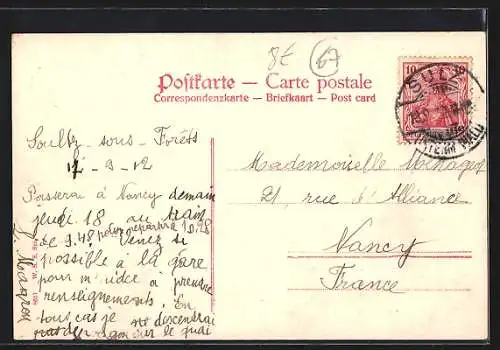 8E 67
Postkarte — Carte postale
Correspondenzkarte — Briefkaart — Post card
10 10
SULZ
Soultz-sous-Forêts
17-9-12
Passerai à Nancy demain
jeudi 18 au train
de 9.48 pour repartir à 10.28
Venez si
possible à la gare
pour m'
renseignements. En
tous cas je ne descendrai
sur le quai
Mademoiselle
21, rue d'Alliance
Nancy
France